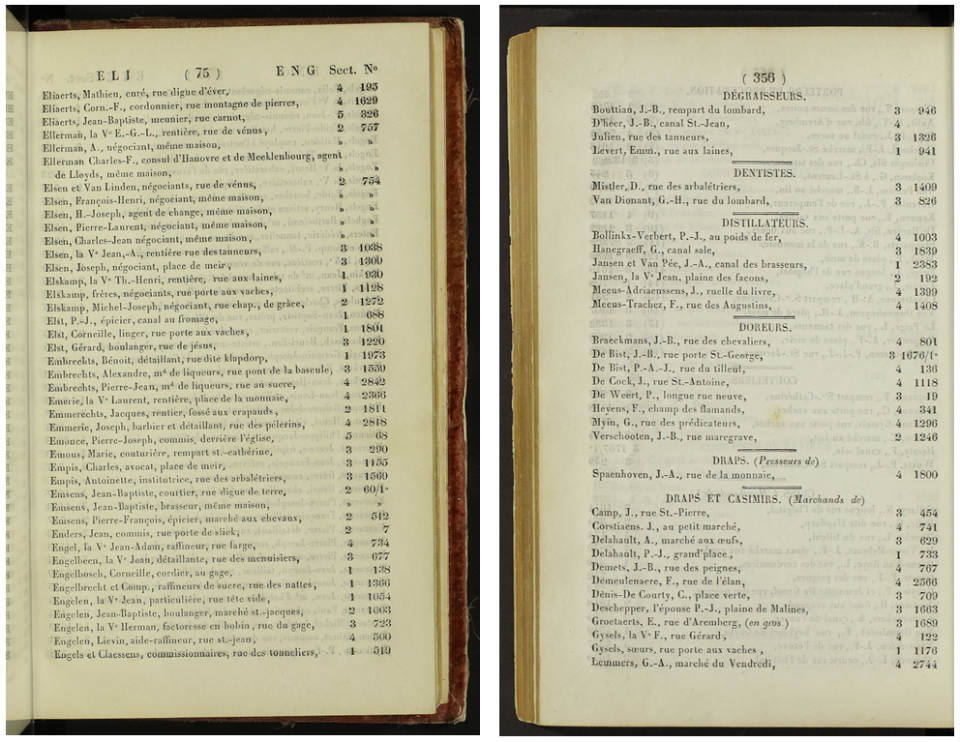 ELI ( 75 ) ENG Sect. Nº
Eliaerts, Mathieu, curé, rue digue d'éver, 4 195
Eliaerts, Corn.-F., cordonnier, rue montagne de pierres, 4 1629
Eliaerts, Jean-Baptiste, meunier, rue carnot, 5 326
Ellerman, la Vᵉ E.-G.-L., rentière, rue de vénus, 2 757
Ellerman, A., négociant, même maison, » »
Ellerman Charles-F., consul d'Hanovre et de Mecklenbourg, agent
de Lloyds, même maison, » »
Elsen et Van Linden, négociants, rue de vénus, 2 754
Elsen, François-Henri, négociant, même maison, » »
Elsen, H.-Joseph, agent de change, même maison, » »
Elsen, Pierre-Laurent, négociant, même maison, » »
Elsen, Charles-Jean négociant, même maison, » »
Elsen, la Vᵉ Jean,-A., rentière rue des tanneurs, 3 1038
Elsen, Joseph, négociant, place de meir, 3 1300
Elskamp, la Vᵉ Th.-Henri, rentière, rue aux laines, 1 930
Elskamp, frères, négociants, rue porte aux vaches, 1 1128
Elskamp, Michel-Joseph, négociant, rue chap., de grâce, 2 1272
Elst, P.-J., épicier, canal au fromage, 1 688
Elst, Corneille, linger, rue porte aux vaches, 1 1801
Elst, Gérard, boulanger, rue de jésus, 3 1220
Embrechts, Bénoit, détaillant, rue dite klapdorp, 1 1973
Embrechts, Alexandre, mᵈ de liqueurs, rue pont de la bascule, 3 1550
Embrechts, Pierre-Jean, mᵈ de liqueurs, rue au sucre, 4 2842
Emerie, la Vᵉ Laurent, rentière, place de la monnaie, 4 2366
Emmerechts, Jacques, rentier, fossé aux crapauds, 2 1811
Emmerie, Joseph, barbier et détaillant, rue des pélerins, 4 2818
Emonce, Pierre-Joseph, commis, derrière l'église, 5 68
Emous, Marie, couturière, rempart st.-cathérine, 3 290
Empis, Charles, avocat, place de meir, 3 1155
Empis, Antoinette, institutrice, rue des arbalétriers, 3 1569
Emsens, Jean-Baptiste, courtier, rue digue de terre, 2 60/1ᵃ
Emsens, Jean-Baptiste, brasseur, même maison, » »
Emsens, Pierre-François, épicier, marché aux chevaux, 2 512
Enders, Jean, commis, rue porte de slick, 2 7
Engel, la Vᵉ Jean-Adam, raffineur, rue large, 4 734
Engelbeen, la Vᵉ Jean, détaillante, rue des menuisiers, 3 677
Engelbosch, Corneille, cordier, au gage, 1 138
Engelbrecht et Comp., raffineurs de sucre, rue des nattes, 1 1366
Engelen, la Vᵉ Jean, particulière, rue tête vide, 1 1054
Engelen, Jean-Baptiste, boulanger, marché st.-jacques, 2 1003
Engelen, la Vᵉ Herman, factoresse en bobin, rue du gage, 3 723
Engelen, Lievin, aide-raffineur, rue st.-jean, 4 500
Engels et Claessens, commissionnaires, rue des tonneliers, 1 519
( 356 )
DÉGRAISSEURS.
Bouttian, J.-B., rempart du lombard, 3 946
D'héer, J.-B., canal St.-Jean, 4 »
Julien, rue des tanneurs, 3 1326
Levert, Emm., rue aux laines, 1 941
DENTISTES.
Mistler, D., rue des arbalétriers, 3 1409
Van Dionant, G.-H., rue du lombard, 3 826
DISTILLATEURS.
Bollinkx-Verbert, P.-J., au poids de fer, 4 1003
Hanegraeff, G., canal sale, 3 1839
Jansen et Van Pée, J.-A., canal des brasseurs, 1 2383
Jansen, la Vᵉ Jean, plaine des facons, 2 192
Meeus-Adriaenssens, J., ruelle du livre, 4 1399
Meeus-Trachez, F., rue des Augustins, 4 1408
DOREURS.
Braeckmans, J.-B., rue des chevaliers, 4 801
De Bist, J.-B., rue porte St.-George, 3 1676/1ᵃ
De Bist, P.-A.-J., rue du tilleul, 4 136
De Cock, J., rue St.-Antoine, 4 1118
De Weert, P., longue rue neuve, 3 19
Heyens, F., champ des flamands, 4 341
Myin, G., rue des prédicateurs, 4 1296
Verschooten, J.-B., rue maregrave, 2 1246
DRAPS. (Presseurs de)
Spaenhoven, J.-A., rue de la monnaie, 4 1800
DRAPS ET CASIMIRS. (Marchands de)
Camp, J., rue St.-Pierre, 3 454
Corstiaens. J., au petit marché, 4 741
Delahault, A., marché aux œufs, 3 629
Delahault, P.-J., grand'place, 1 733
Demets, J.-B., rue des peignes, 4 767
Demeulenaere, F., rue de l'élan, 4 2566
Dènis-De Courty, C., place verte, 3 709
Deschepper, l'épouse P.-J., plaine de Malines, 3 1663
Groetaerts, E., rue d'Aremberg, (en gros.) 3 1689
Gysels, la Vᵉ F., rue Gérard, 4 122
Gysels, sœurs, rue porte aux vaches, 1 1176
Lemmers, G.-A., marché du Vendredi, 4 2744